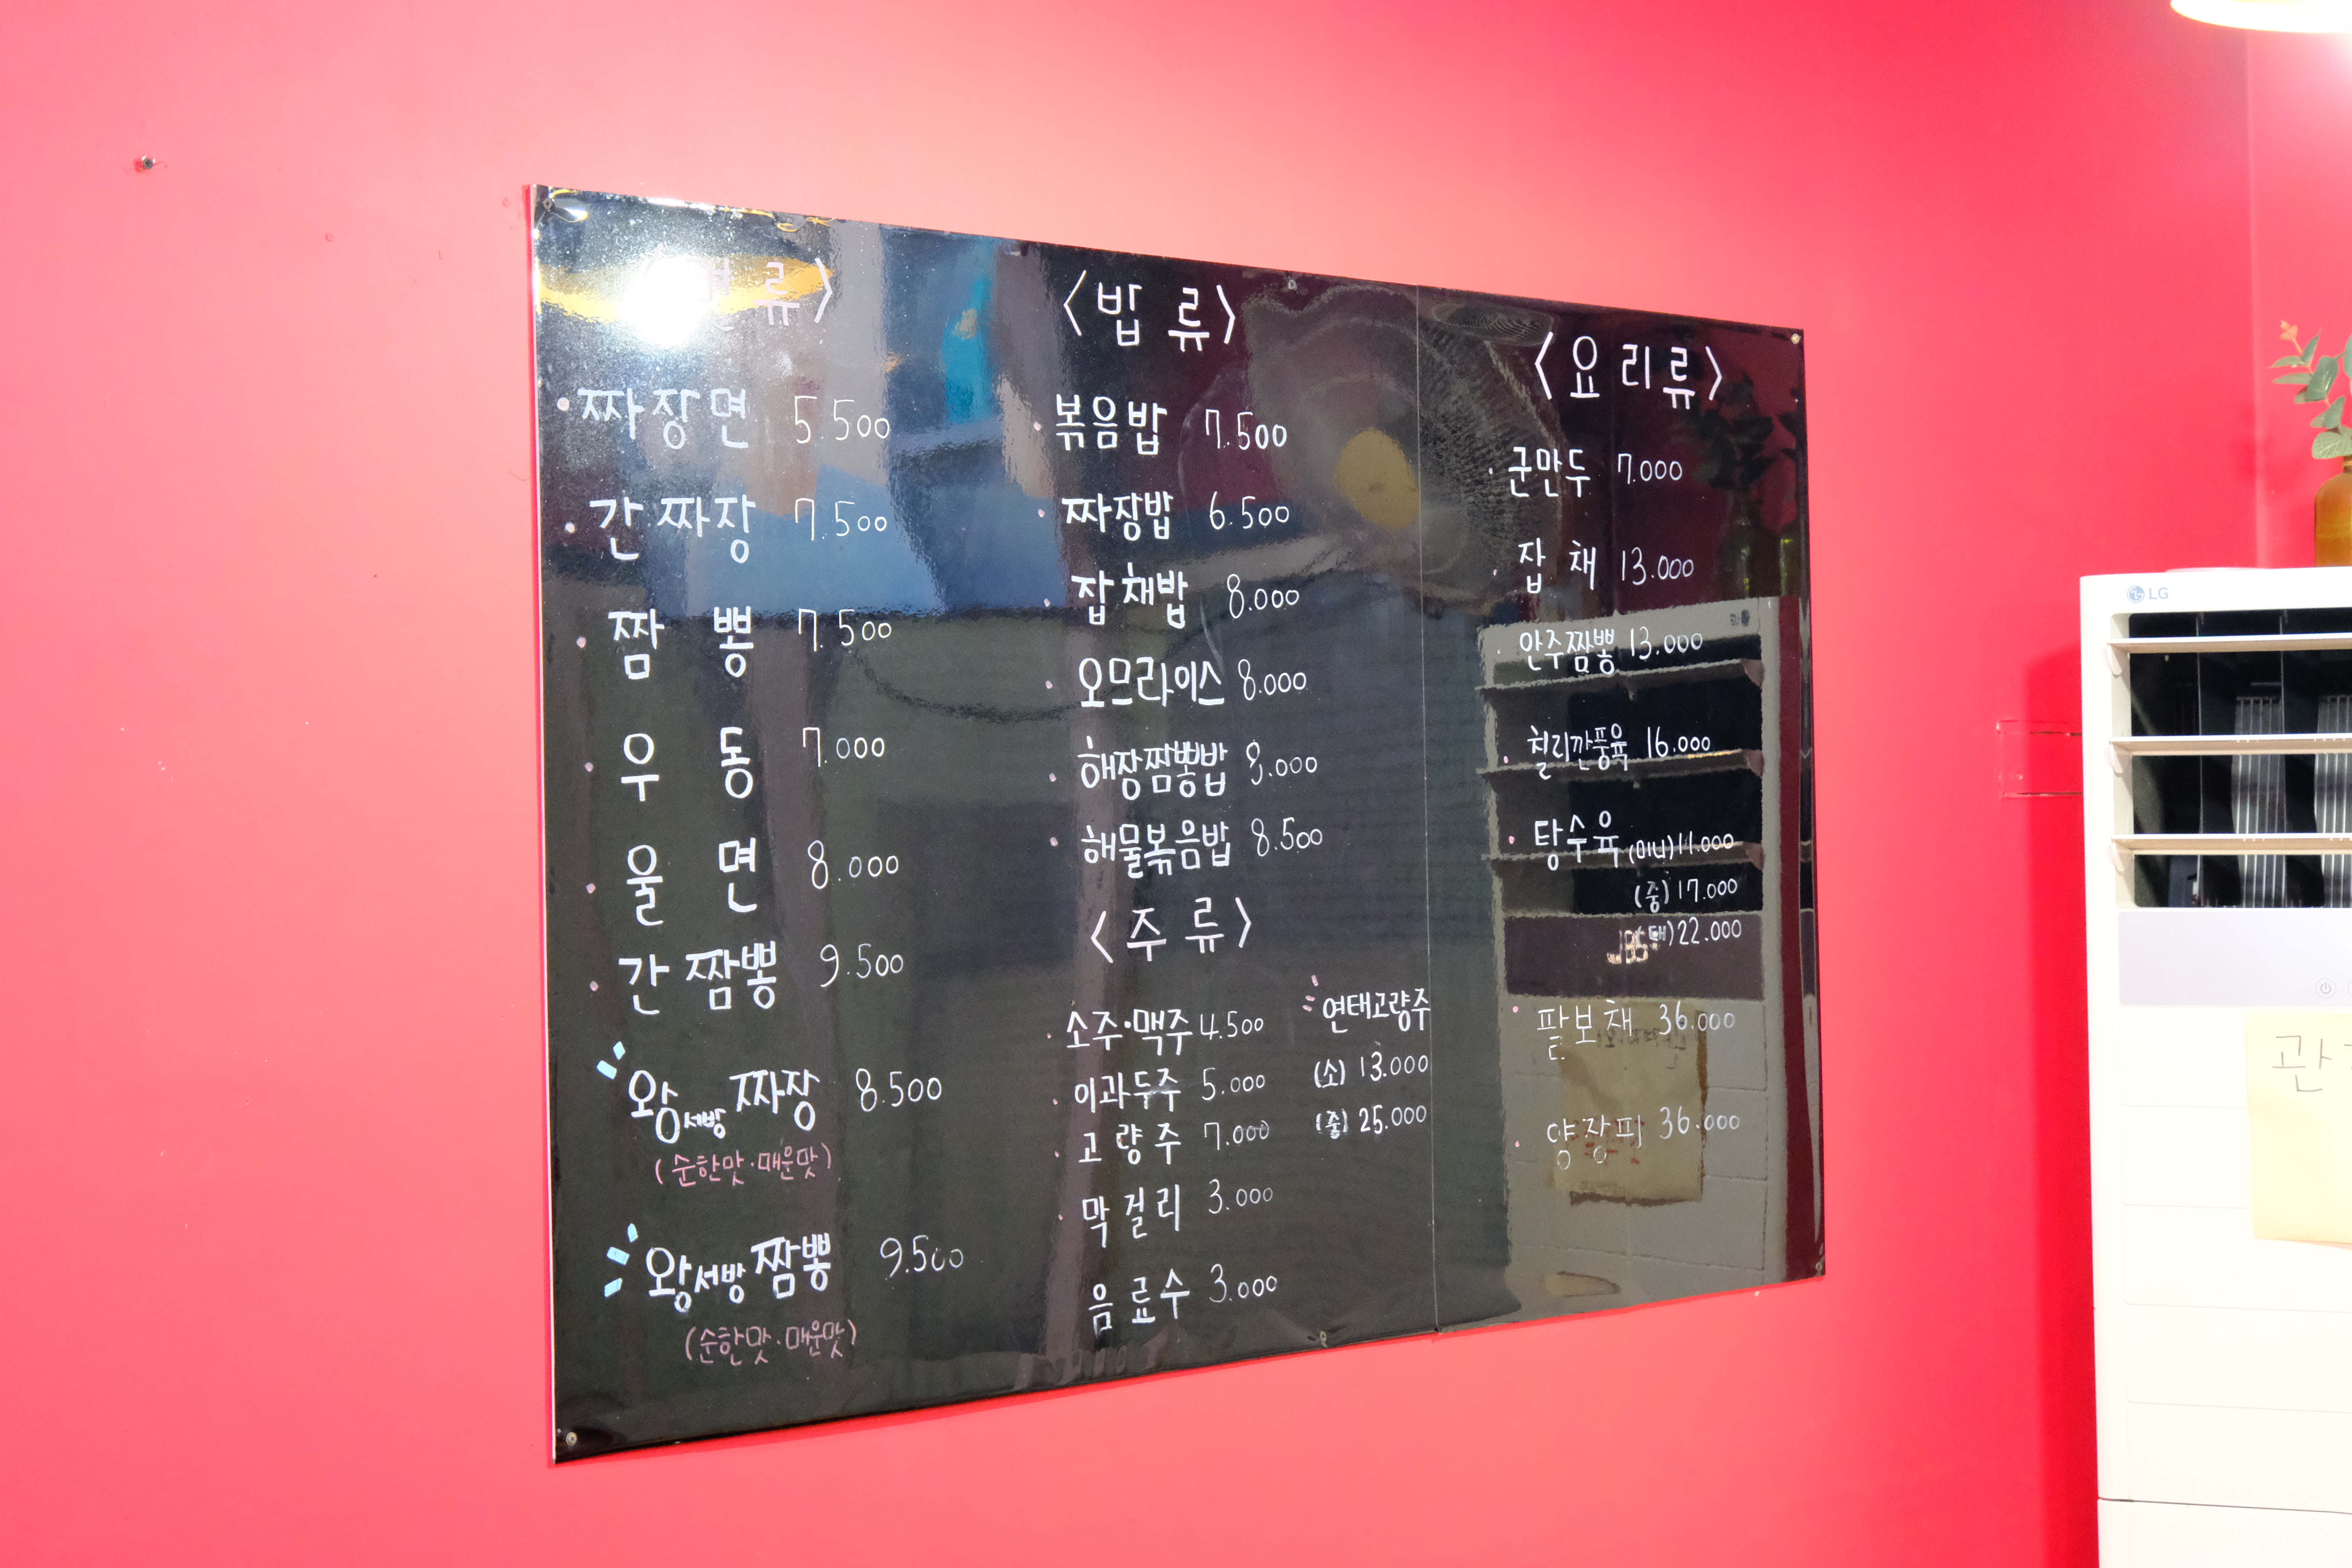 〈면 류〉
· 짜장면 5.500
· 간 짜장 7.500
· 짬 뽕 7.500
· 우 동 7.000
· 울 면 8.000
· 간 짬뽕 9.500
왕서방 짜장 8.500
(순한맛·매운맛)
왕서방 짬뽕 9.500
(순한맛·매운맛)
〈밥 류〉
· 볶음밥 7.500
· 짜장밥 6.500
· 잡채밥 8.000
· 오므라이스 8.000
· 해장짬뽕밥 8.000
· 해물볶음밥 8.500
〈주 류〉
· 소주·맥주 4.500
· 이과두주 5.000
· 고량주 7.000
· 막걸리 3.000
음료수 3.000
연태고량주
(소) 13.000
(중) 25.000
〈요리류〉
· 군만두 7.000
· 잡 채 13.000
· 안주짬뽕 13.000
· 칠리깐풍육 16.000
· 탕수육 (미니) 11.000
(중) 17.000
(대) 22.000
· 팔보채 36.000
· 양장피 36.000
LG